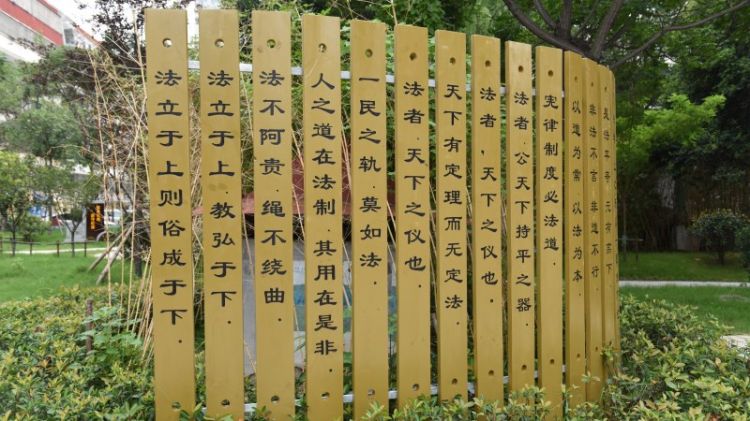 法立于上则俗成于下.
法立于上.教弘于下.
法不阿贵.绳不绕曲.
人之道在法制.其用在是非.
一民之轨.莫如法.
法者.天下之仪也.
天下有定理而无定法.
法者.天下之仪也.
法者.公天下持平之器.
宪律制度必法道.
以道为常.以法为本
非法不言.非道不行
是法平等.无有高下